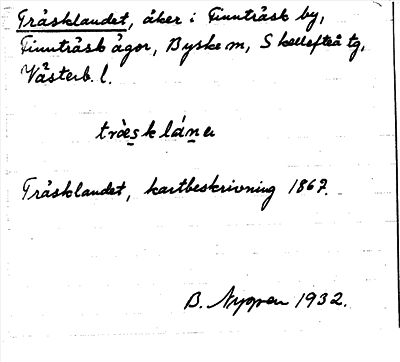 Träsklandet, åker i Finnträsk by,
Finnträsk ägor, Byske m, Skellefteå tg,
Västerb. l.
träsklánα
Träsklandet, kartbeskrivning 1867.
B. Nygren 1932.